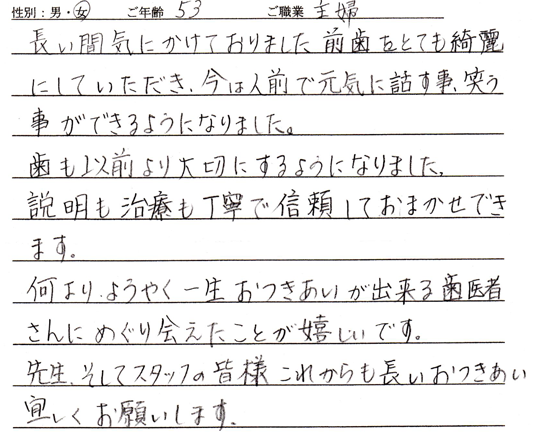 性別：男・女 ご年齢 53 ご職業 主婦
長い間気にかけておりました前歯をとても綺麗
にしていただき、今は人前で元気に話す事、笑う
事ができるようになりました。
歯も以前より大切にするようになりました。
説明も治療も丁寧で信頼しておまかせでき
ます。
何より、ようやく一生おつきあいが出来る歯医者
さんにめぐり会えたことが嬉しいです。
先生、そしてスタッフの皆様これからも長いおつきあい
宜しくお願いします。